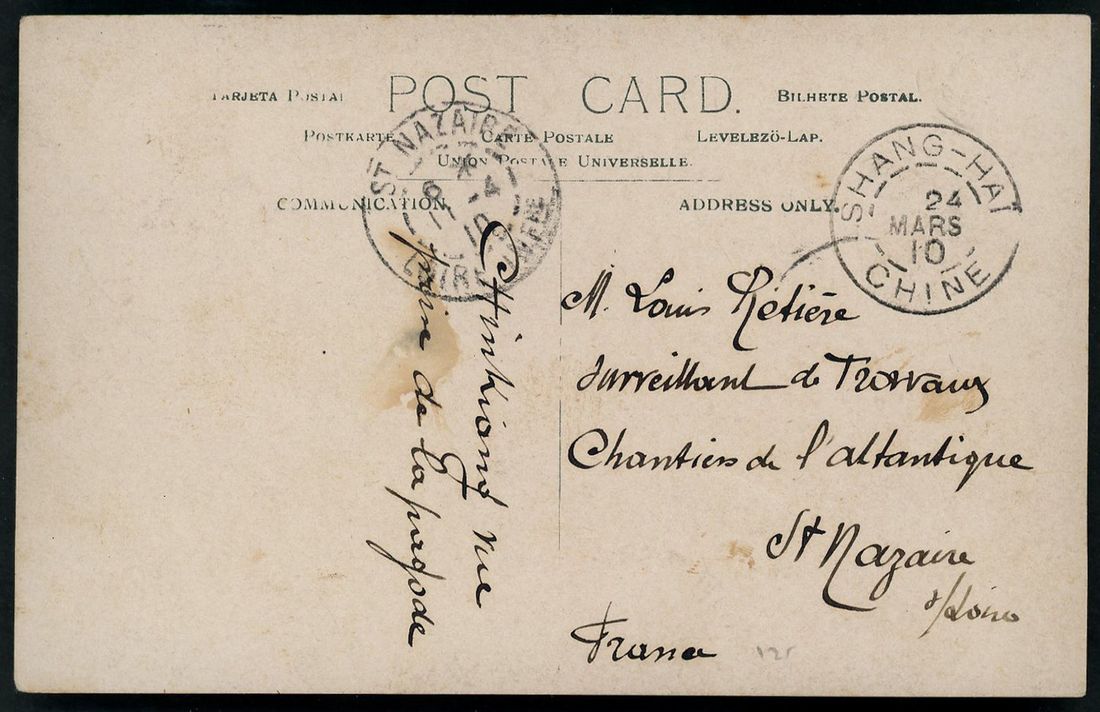 TARJETA POSTAL
POST CARD.
BILHETE POSTAL.
POSTKARTE
CARTE POSTALE
LEVELEZÖ-LAP.
UNION POSTALE UNIVERSELLE.
COMMUNICATION.
ADDRESS ONLY.
ST NAZAIRE
LOIRE INFRE
SHANG-HAI
24
MARS
10
CHINE
Chinkiang vue
prise de la pagode
M. Louis Rétière
Surveillant de Travaux
Chantiers de l'altantique
St Nazaire
s/Loire
France